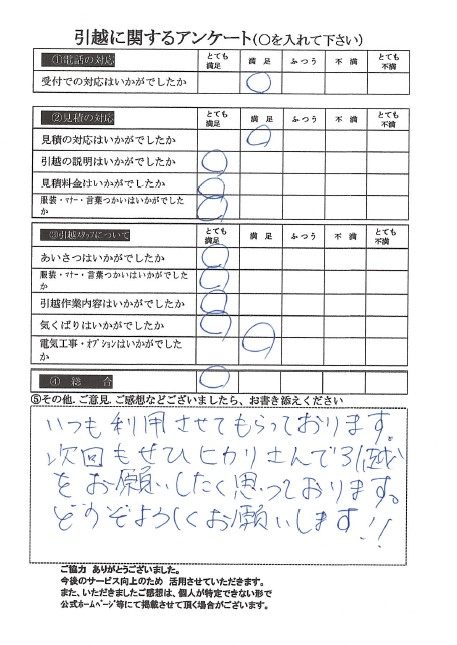 引越に関するアンケート(○を入れて下さい)
①電話の対応 とても満足 満足 ふつう 不満 とても不満
受付での対応はいかがでしたか ○
②見積の対応 とても満足 満足 ふつう 不満 とても不満
見積の対応はいかがでしたか ○
引越の説明はいかがでしたか ○
見積料金はいかがでしたか ○
服装・マナー・言葉つかいはいかがでしたか ○
③引越スタッフについて とても満足 満足 ふつう 不満 とても不満
あいさつはいかがでしたか ○
服装・マナー・言葉つかいはいかがでしたか ○
引越作業内容はいかがでしたか ○
気くばりはいかがでしたか ○
電気工事・オプションはいかがでしたか ○
④ 総 合 ○
⑤その他、ご意見、ご感想などございましたら、お書き添えください
いつも利用させてもらっております。
次回もぜひヒカリさんで引越
をお願いしたく思っております。
どうぞよろしくお願いします!!
ご協力 ありがとうございました。
今後のサービス向上のため 活用させていただきます。
また、いただきましたご感想は、個人が特定できない形で
公式ホームページ等にて掲載させて頂く場合がございます。